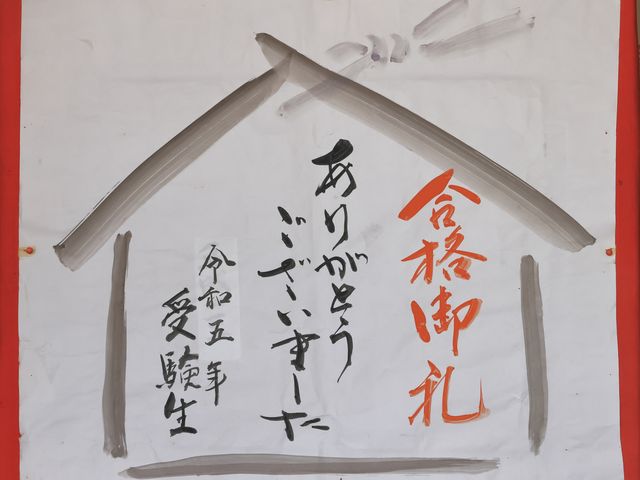 合格御札
ありがとう
ございました
令和五年
受験生